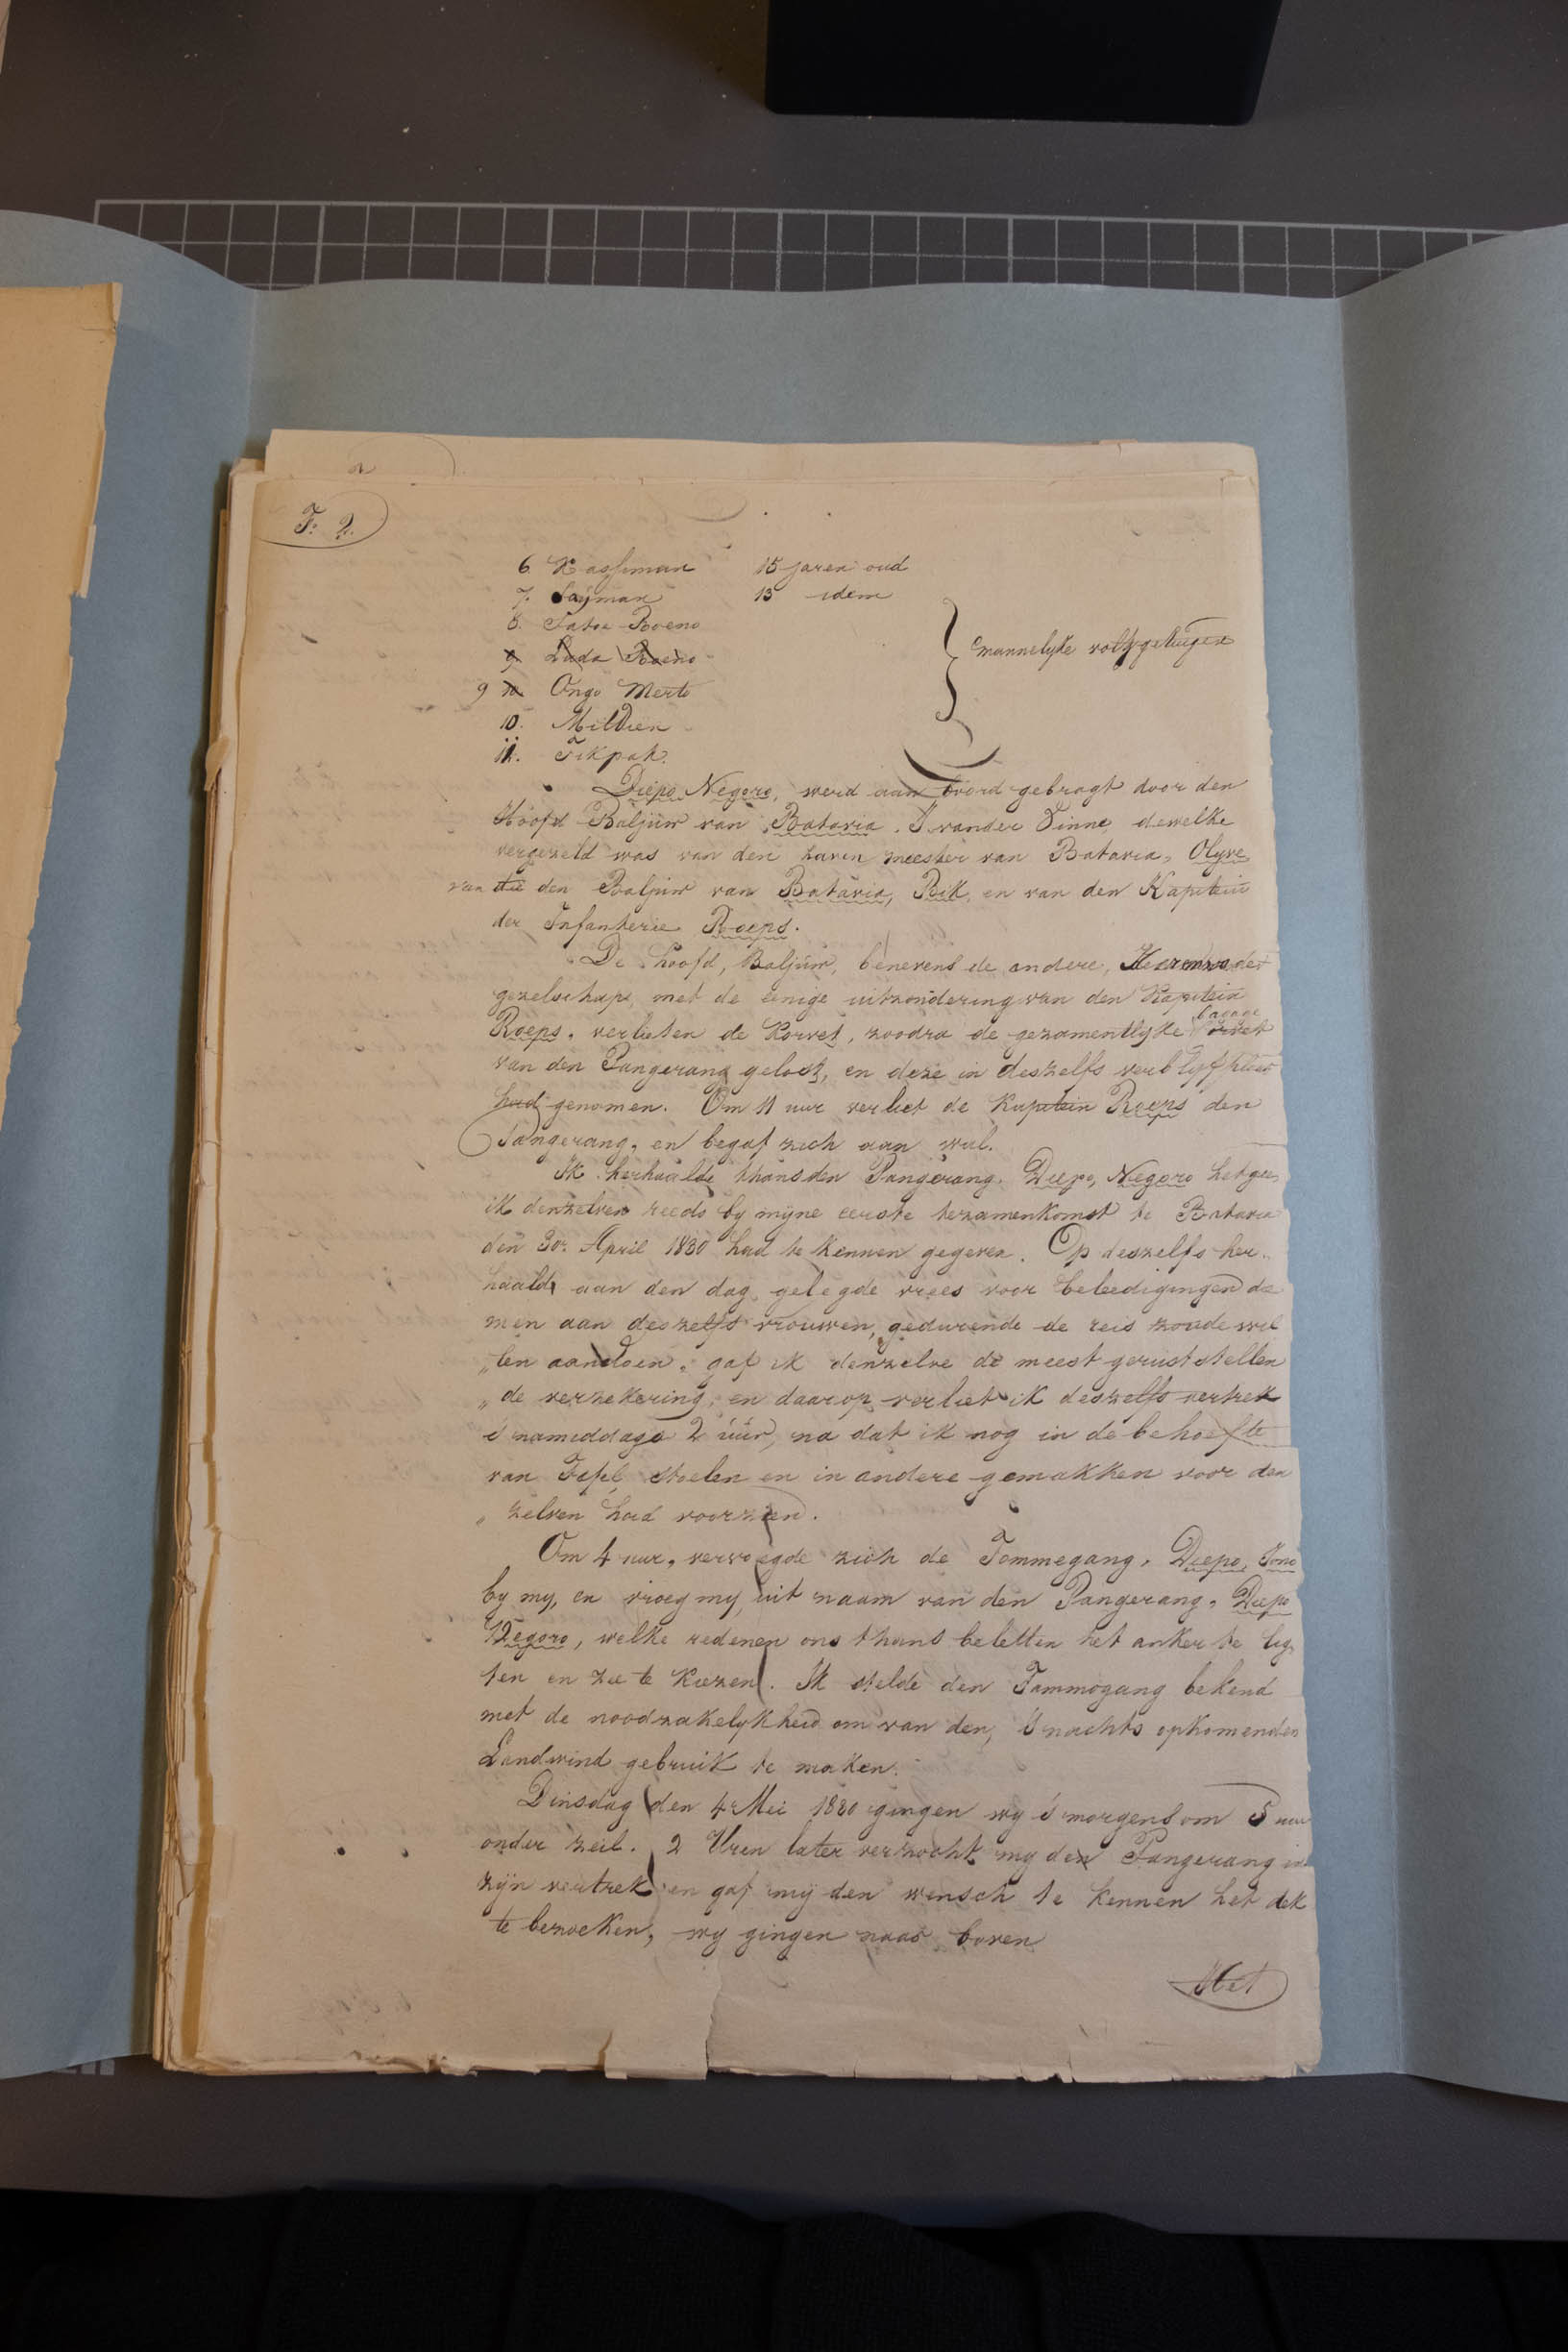 F: 2.
6. Kassiman 15 jaren oud
7. Saÿman 13 idem
8. Satoe Roeno
9 Suda Roeno
9 10 Ongo Merto
10. Miltien
11. Tikpak.
mannelyke volksgetuigen
Diepo Negoro, werd aan boord gebragt door den
Hoofd Baljuw van Batavia. J. vander Vinne dewelke
vergezeld was van den haven meester van Batavia, Olyve
van den Baljuw van Batavia, Bik, en van den Kapitein
der Infanterie Roeps.
De hoofd, Baljuw, benevens de andere, Heeren van het
gezelschap, met de eenige uitzondering van den Kapitein
Roeps, verlieten de Korvet, zoodra de gezamentlyke bagage
van den Pangerang gelost, en deze in deszelfs verblyf plaats
had genomen. Om 11 uur verliet de Kapitein Roeps den
Pangerang, en begaf zich aan wal.
Ik herhaalde thans den Pangerang. Diepo, Negoro hetgeen
ik denzelven reeds by myne eerste tezamenkomst te Batavia
den 30n April 1830 had te kennen gegeven. Op deszelfs her-
haalde aan den dag, gelegde vrees voor beleedigingen die
men aan deszelfs vrouwen, gedurende de reis zoude wil
„len aandoen, gaf ik denzelve de meest geruststellen
„de verzekering, en daarop verliet ik deszelfs vertrek
's namiddags 2 úúr, na dat ik nog in de behoefte
van Tafel, stoelen en in andere gemakken voor den
„zelven had voorzien.
Om 4 uur, vervoegde zich de Tommegang, Diepo, Sono
by my, en vroeg my, uit naam van den Pangerang, Diepo
Negoro, welke redenen ons thans beletten het anker te lig
ten en zee te kiezen. Ik stelde den Tammogang bekend
met de noodzakelykheid om van den, 's nachts opkomenden
Landwind gebruik te maken.
Dinsdag den 4 Mei 1830 gingen wy 's morgens om 5 uur
onder zeil. 2 Uren later verzocht my den Pangerang in
zijn vertrek en gaf mij den wensch te kennen het dek
te bezoeken, wy gingen naar boven
Het